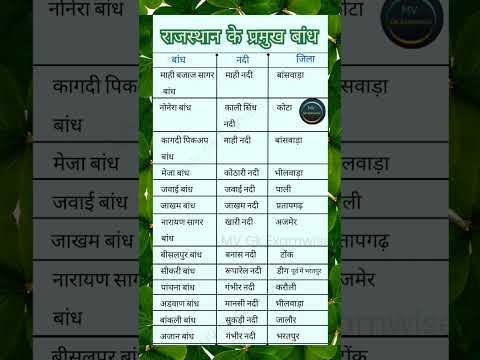 राजस्थान के प्रमुख बांध
MV
Gk Examwise
बांध नदी जिला
माही बजाज सागर बांध माही नदी बांसवाड़ा
नोनेरा बांध काली सिंध नदी कोटा
कागदी पिकअप बांध माही नदी बांसवाड़ा
मेजा बांध कोठारी नदी भीलवाड़ा
जवाई बांध जवाई नदी पाली
जाखम बांध जाखम नदी प्रतापगढ़
नारायण सागर बांध खारी नदी अजमेर
बीसलपुर बांध बनास नदी टोंक
सीकरी बांध रूपारेल नदी डीग पूर्व में भरतपुर
पांचना बांध गंभीर नदी करौली
अडवाण बांध मानसी नदी भीलवाड़ा
बांकली बांध सुकड़ी नदी जालौर
अजान बांध गंभीर नदी भरतपुर
MV Gk Examwise
नोनेरा बांध
कागदी पिक
बांध
मेजा बांध
जवाई बांध
जाखम बांध
नारायण सा
बांध
बीसलपुर बां
कोटा
बांसवाड़ा
भीलवाड़ा
पाली
प्रतापगढ़
जमेर
टोंक